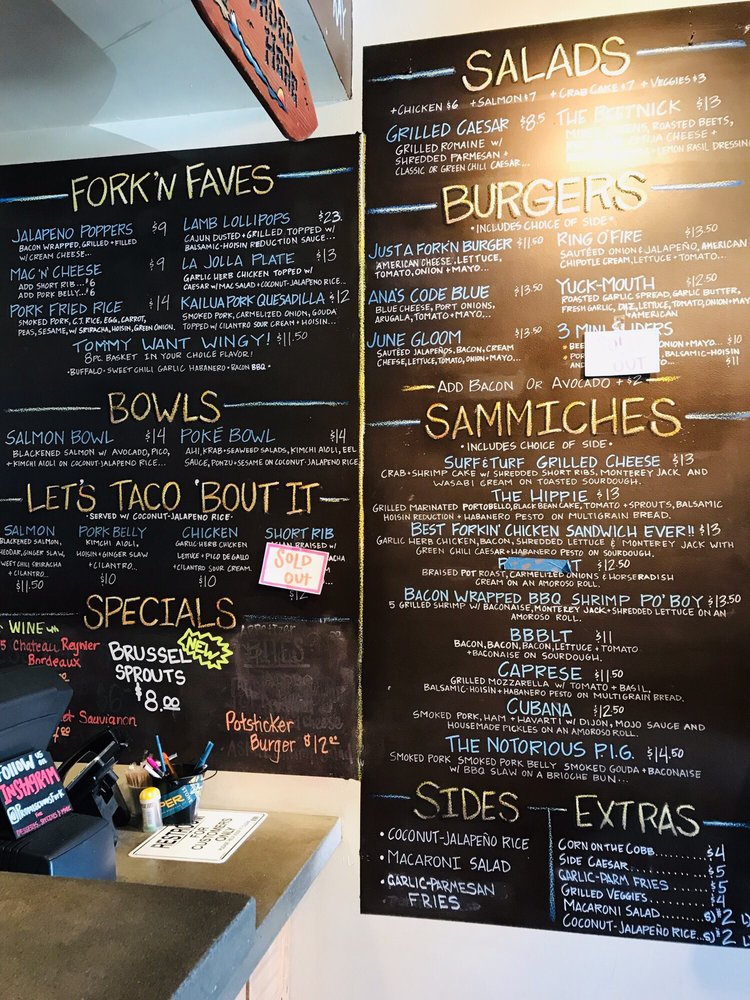 FORK'N FAVES
JALAPENO POPPERS $9
BACON WRAPPED, GRILLED + FILLED
W/ CREAM CHEESE...
MAC 'N' CHEESE $9
ADD SHORT RIB...$6
ADD PORK BELLY...$6
PORK FRIED RICE $14
SMOKED PORK, C.J. RICE, EGG, CARROT,
PEAS, SESAME, W/ SRIRACHA, HOISIN, GREEN ONION.
LAMB LOLLIPOPS $23
CAJUN DUSTED + GRILLED TOPPED W/
BALSAMIC-HOISIN REDUCTION SAUCE...
LA JOLLA PLATE $13
GARLIC HERB CHICKEN TOPPED W/
CAESAR W/ MAC SALAD + COCONUT-JALAPENO RICE...
KAILUA PORK QUESADILLA $12
SMOKED PORK, CARMELIZED ONION, GOUDA
TOPPED W/ CILANTRO SOUR CREAM + HOISIN...
TOMMY WANT WINGY! $11.50
8PC BASKET IN YOUR CHOICE FLAVOR!
•BUFFALO • SWEET CHILI GARLIC HABANERO • BACON BBQ •
BOWLS
SALMON BOWL $14
BLACKENED SALMON W/ AVOCADO, PICO,
+ KIMCHI AIOLI ON COCONUT-JALAPENO RICE...
POKÉ BOWL $14
AHI, KRAB + SEAWEED SALADS, KIMCHI AIOLI, EEL
SAUCE, PONZU + SESAME ON COCONUT-JALAPENO RICE
LET'S TACO 'BOUT IT
•SERVED W/ COCONUT-JALAPENO RICE•
SALMON
BLACKENED SALMON,
CHEDDAR, GINGER SLAW,
SWEET CHILI SRIRACHA
+ CILANTRO...
$11.50
PORK BELLY
KIMCHI AIOLI,
HOISIN + GINGER SLAW
+ CILANTRO...
$10
CHICKEN
GARLIC-HERB CHICKEN
LETTUCE + PICO DE GALLO
+ CILANTRO SOUR CREAM.
$10
SHORT RIB
SOLD
OUT
$12
SPECIALS
WINE
Chateau Reynier
Bordeaux
Sauvignon
BRUSSEL
SPROUTS
$8.00
NEW
Potsticker
Burger $12.00
FOLLOW US
ON
INSTAGRAM
RESTROOM
FOR
CUSTOMERS
ONLY
SALADS
+CHICKEN $6 +SALMON $7 +CRAB CAKE $7 +VEGGIES $3
GRILLED CAESAR $8.5
GRILLED ROMAINE W/
SHREDDED PARMESAN +
CLASSIC OR GREEN CHILI CAESAR...
THE BEETNICK $13
ROASTED BEETS,
CHEESE +
+ LEMON BASIL DRESSING
BURGERS
•INCLUDES CHOICE OF SIDE•
JUST A FORK'N BURGER $11.50
AMERICAN CHEESE, LETTUCE,
TOMATO, ONION + MAYO...
ANA'S CODE BLUE $13.50
BLUE CHEESE, PORT ONIONS,
ARUGALA, TOMATO + MAYO...
JUNE GLOOM $13.50
SAUTÉED JALAPENOS, BACON, CREAM
CHEESE, LETTUCE, TOMATO, ONION + MAYO...
RING O'FIRE $13.50
SAUTÉED ONION & JALAPENO, AMERICAN
CHIPOTLE CREAM, LETTUCE + TOMATO...
YUCK-MOUTH $12.50
ROASTED GARLIC SPREAD, GARLIC BUTTER,
FRESH GARLIC, LETTUCE, TOMATO, ONION + MAYO
+AMERICAN
3 MINI SLIDERS
ONION + MAYO... $10
BALSAMIC-HOISIN
$11
OUT
ADD BACON OR AVOCADO + $2
SAMMICHES
•INCLUDES CHOICE OF SIDE•
SURF & TURF GRILLED CHEESE $13
CRAB + SHRIMP CAKE W/ SHREDDED SHORT RIBS, MONTEREY JACK AND
WASABI CREAM ON TOASTED SOURDOUGH.
THE HIPPIE $13
GRILLED MARINATED PORTOBELLO, BLACK BEAN CAKE, TOMATO + SPROUTS, BALSAMIC
HOISIN REDUCTION + HABANERO PESTO ON MULTIGRAIN BREAD.
BEST FORKIN' CHICKEN SANDWICH EVER!! $13
GARLIC HERB CHICKEN, BACON, SHREDDED LETTUCE & MONTEREY JACK WITH
GREEN CHILI CAESAR + HABANERO PESTO ON SOURDOUGH.
$12.50
BRAISED POT ROAST, CARMELIZED ONIONS & HORSERADISH
CREAM ON AN AMOROSO ROLL.
BACON WRAPPED BBQ SHRIMP PO' BOY $13.50
5 GRILLED SHRIMP W/ BACONAISE, MONTEREY JACK + SHREDDED LETTUCE ON AN
AMOROSO ROLL.
BBBLT $11
BACON, BACON, BACON, LETTUCE + TOMATO
+ BACONAISE ON SOURDOUGH.
CAPRESE $11.50
GRILLED MOZZARELLA W/ TOMATO + BASIL,
BALSAMIC-HOISIN + HABANERO PESTO ON MULTIGRAIN BREAD.
CUBANA $12.50
SMOKED PORK, HAM + HAVARTI W/ DIJON, MOJO SAUCE AND
HOUSEMADE PICKLES ON AN AMOROSO ROLL.
THE NOTORIOUS P.I.G. $14.50
SMOKED PORK SMOKED PORK BELLY SMOKED GOUDA + BACONAISE
W/ BBQ SLAW ON A BRIOCHE BUN...
SIDES
•COCONUT-JALAPEÑO RICE
•MACARONI SALAD
•GARLIC-PARMESAN
FRIES
EXTRAS
CORN ON THE COBB........$4
SIDE CAESAR...........$5
GARLIC-PARM FRIES......$5
GRILLED VEGGIES.......$4
MACARONI SALAD.....S)$2 L)
COCONUT-JALAPEÑO RICE...S)$2 L)